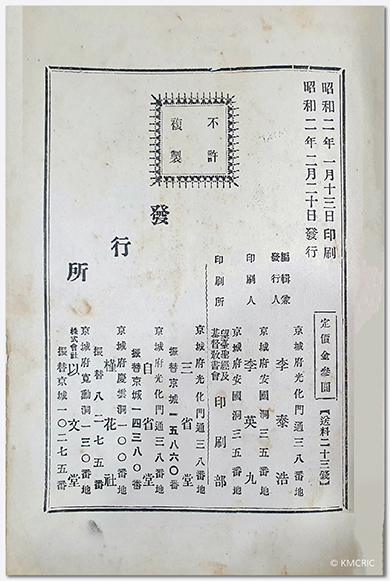 昭和二年一月十三日印刷
昭和二年二月二十日發行
定價金參圓
【送料二十三錢】
京城府光化門通三八番地
編輯兼
發行人
李泰浩
京城府安國洞三五番地
印刷人
李英九
京城府安國洞三五番地
印刷所
望臺聖經及
基督敎書會
印刷部
不許
複製
發行所
京城府光化門通三八番地
三省堂
振替京城一五八六〇番
京城府光化門通三八番地
自省堂
振替京城一四三八〇番
京城府慶雲洞一〇〇番地
槿花社
振替八二七五番
京城府寬勳洞一三〇番地
株式會社
以文堂
振替京城一〇二七五番
© KMCRIC